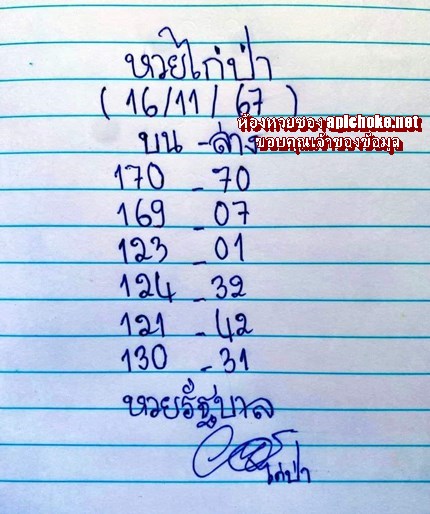 หวยไก่ป่า
(16/11/67)
ห้องหวยของ apichoke.net
ขอบคุณเจ้าของข้อมูล
บน - ล่าง
170 - 70
169 - 07
123 - 01
124 - 32
121 - 42
130 - 31
หวยรัฐบาล
ไก่ป่า